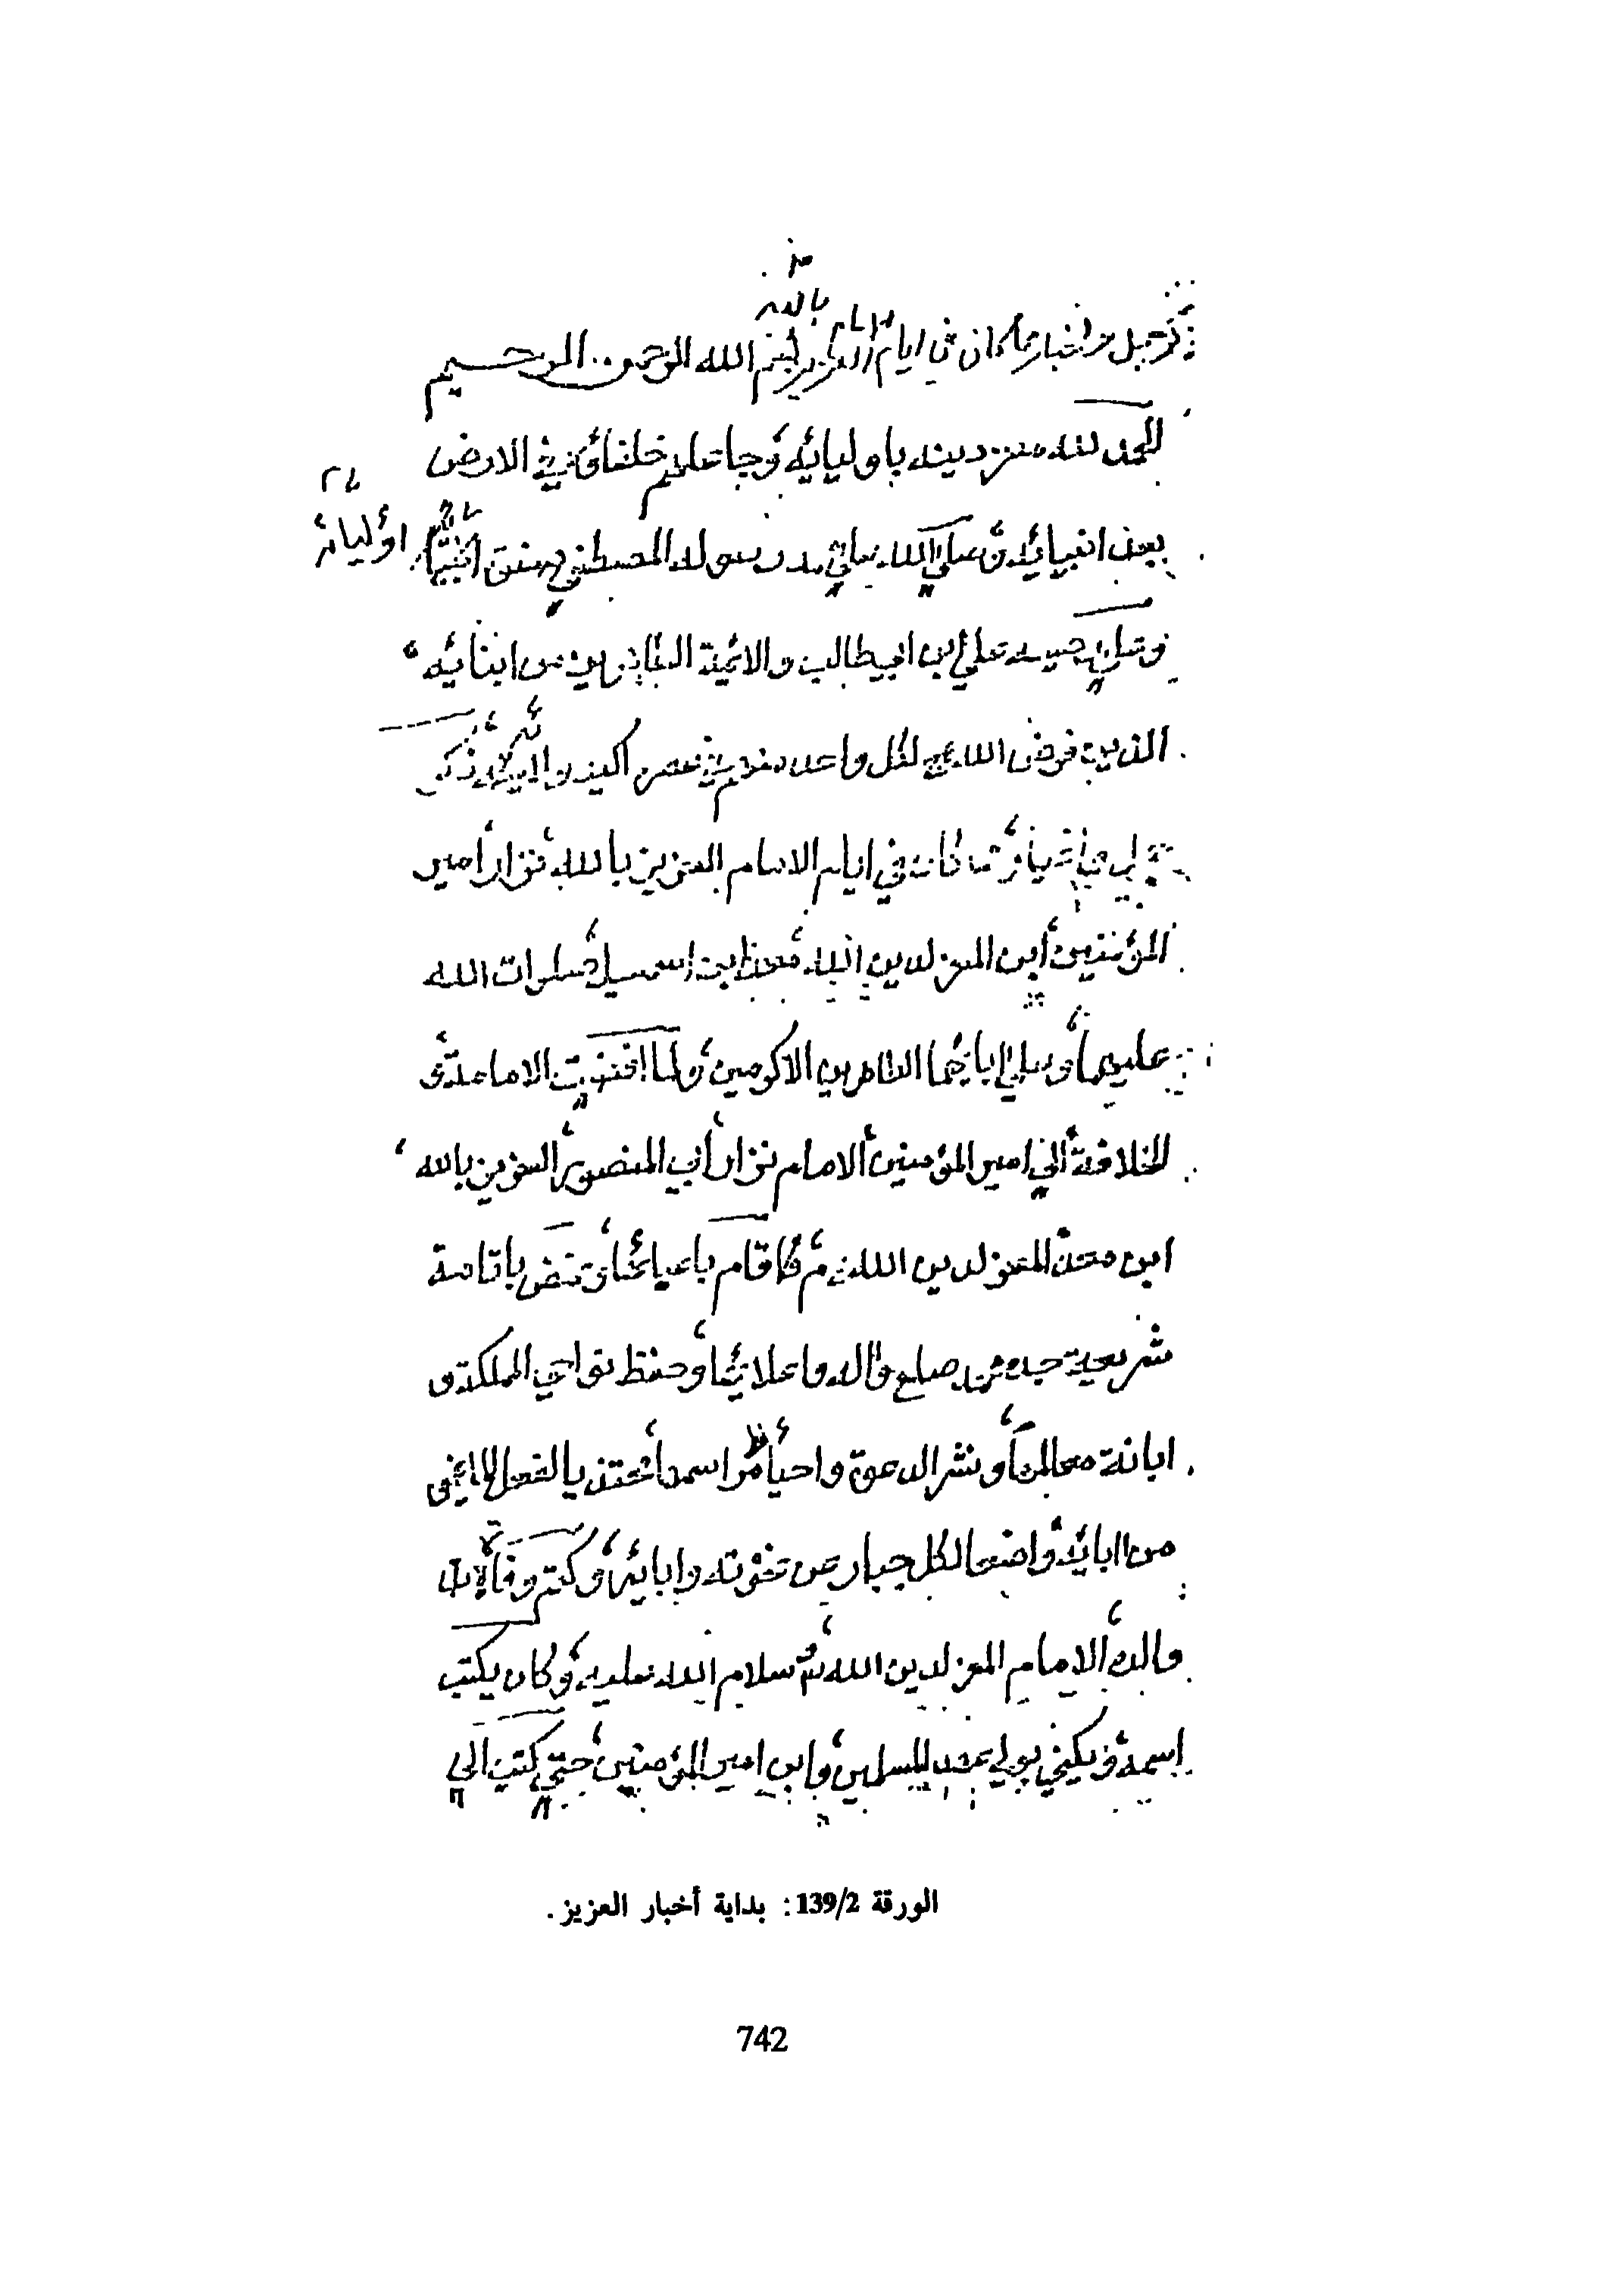 ذكر جمل من اخبار ما كان في ايام الامام العزيز بالله بسم الله الرحمن الرحيم
الحمد لله معز دينه باوليائه وجاعلهم خلفائه في الارض
بعد انبيائه وصلى الله على محمد رسوله المصطفى صفوة اوليائه
وعلى وصيه علي بن ابيطالب والائمة الطاهرين من ابنائه
الذين فرض الله لكل واحد منهم في عصره اكيد ولائه ذكر
جمل ما كانت في ايام الامام العزيز بالله نزار امير
المؤمنين ابن المعز لدين الله معد بن اسمعيل صلوات الله
عليهما وعلى ابائهما الطاهرين الاكرمين ولما افضت الامامة و
الخلافة الى امير المؤمنين الامام نزار أبي المنصور العزيز بالله
ابن معد المعز لدين الله قام باعبائها ونهض باقامة
شريعة جده محمد صلع واله واعلائها وحفظ نواحي المملكة و
ابانة معالمها ونشر الدعوة واحياء مراسمها محتذيا لفعل
من ابائه واضعا لكل جبار عن نخوته وابائه وكتم وفاة
والده الامام المعز لدين الله سلام الله عليه وكان يكتب
اسمه ويكنى بولي عهد المسلمين وابن امير المؤمنين حتى كتب الى
الورقة 139/2: بداية أخبار العزيز.
742